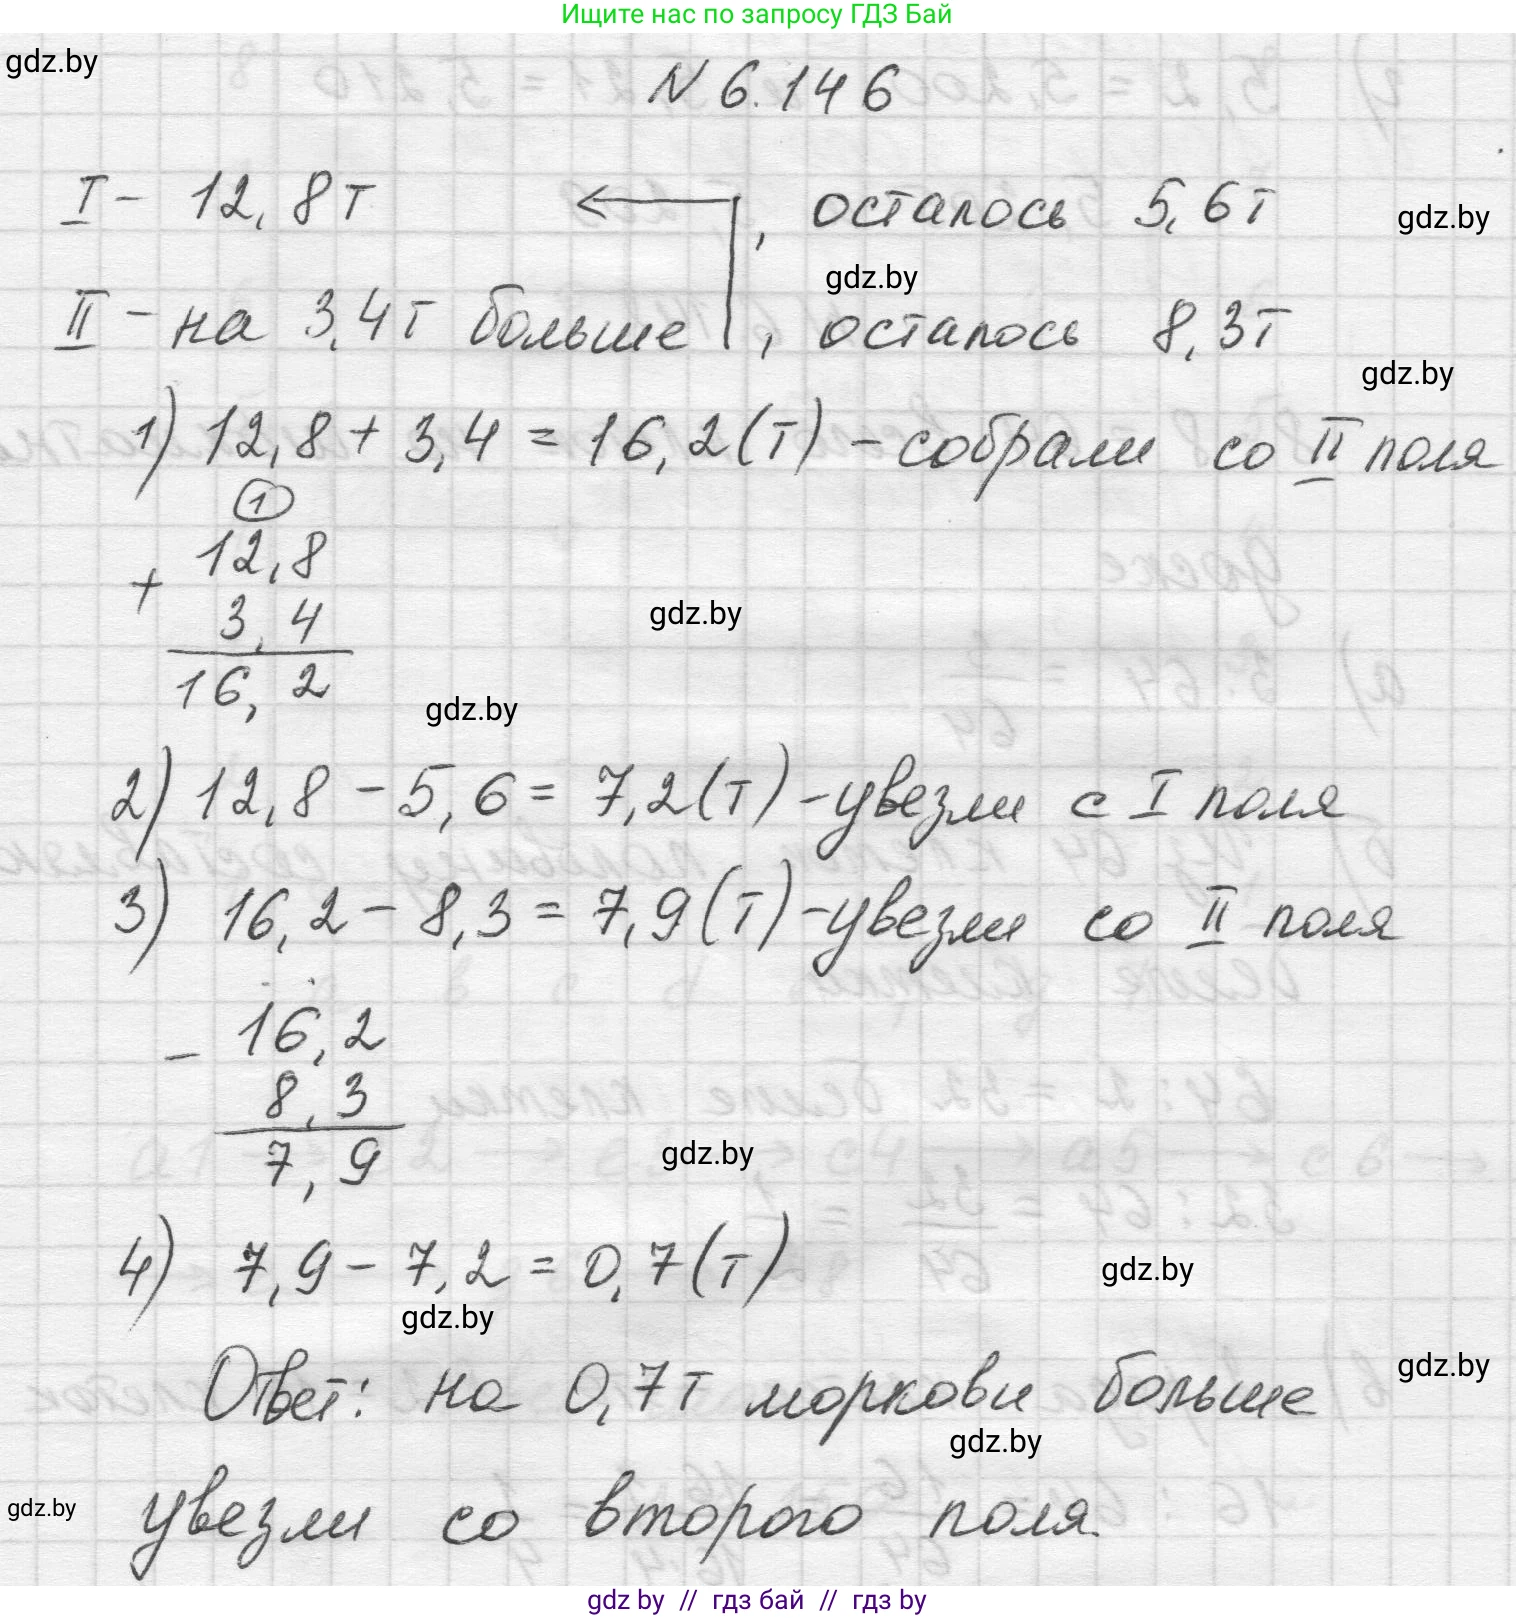 Ищите нас по запросу ГДЗ Бай
gdz.by
N 6.146
I - 12,8т , осталось 5,6т
gdz.by
gdz.by
II - на 3,4т больше , осталось 8,3т
gdz.by
1) 12,8 + 3,4 = 16,2 (т) - собрали со II поля
1
+ 12,8
3,4
gdz.by
16,2
gdz.by
2) 12,8 - 5,6 = 7,2 (т) - увезли с I поля
3) 16,2 - 8,3 = 7,9 (т) - увезли со II поля
- 16,2
8,3
7,9
gdz.by
4) 7,9 - 7,2 = 0,7 (т)
gdz.by
gdz.by
gdz.by
Ответ: на 0,7т моркови больше
gdz.by
gdz.by
увезли со второго поля.
gdz by // гдз бай // гдз by